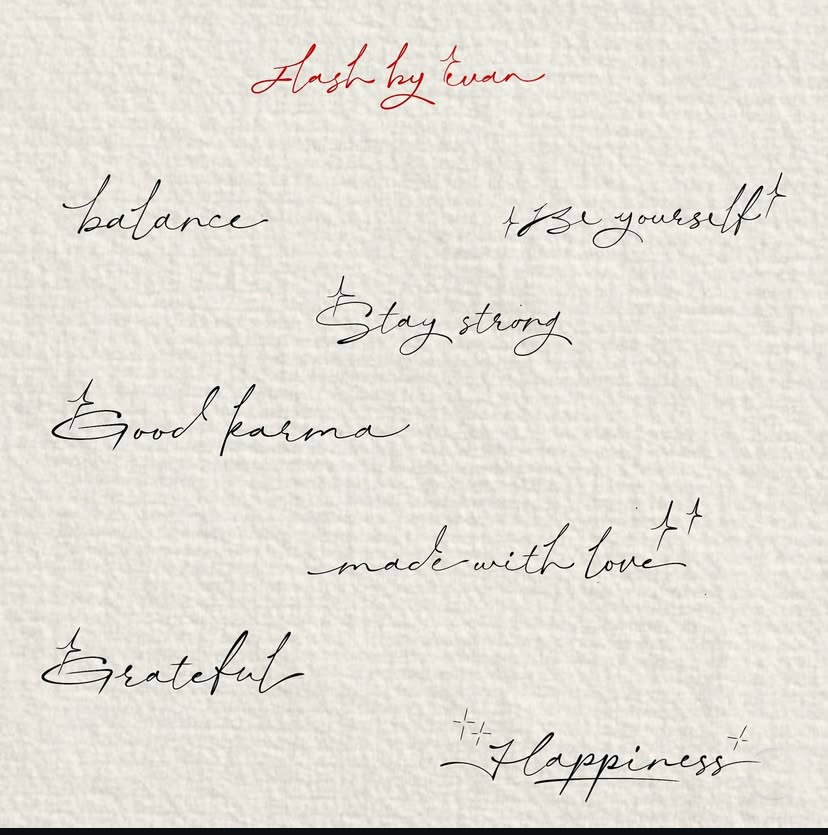 Flash by Evan
balance
Be yourself
Stay strong
Good karma
made with love
Grateful
Happiness